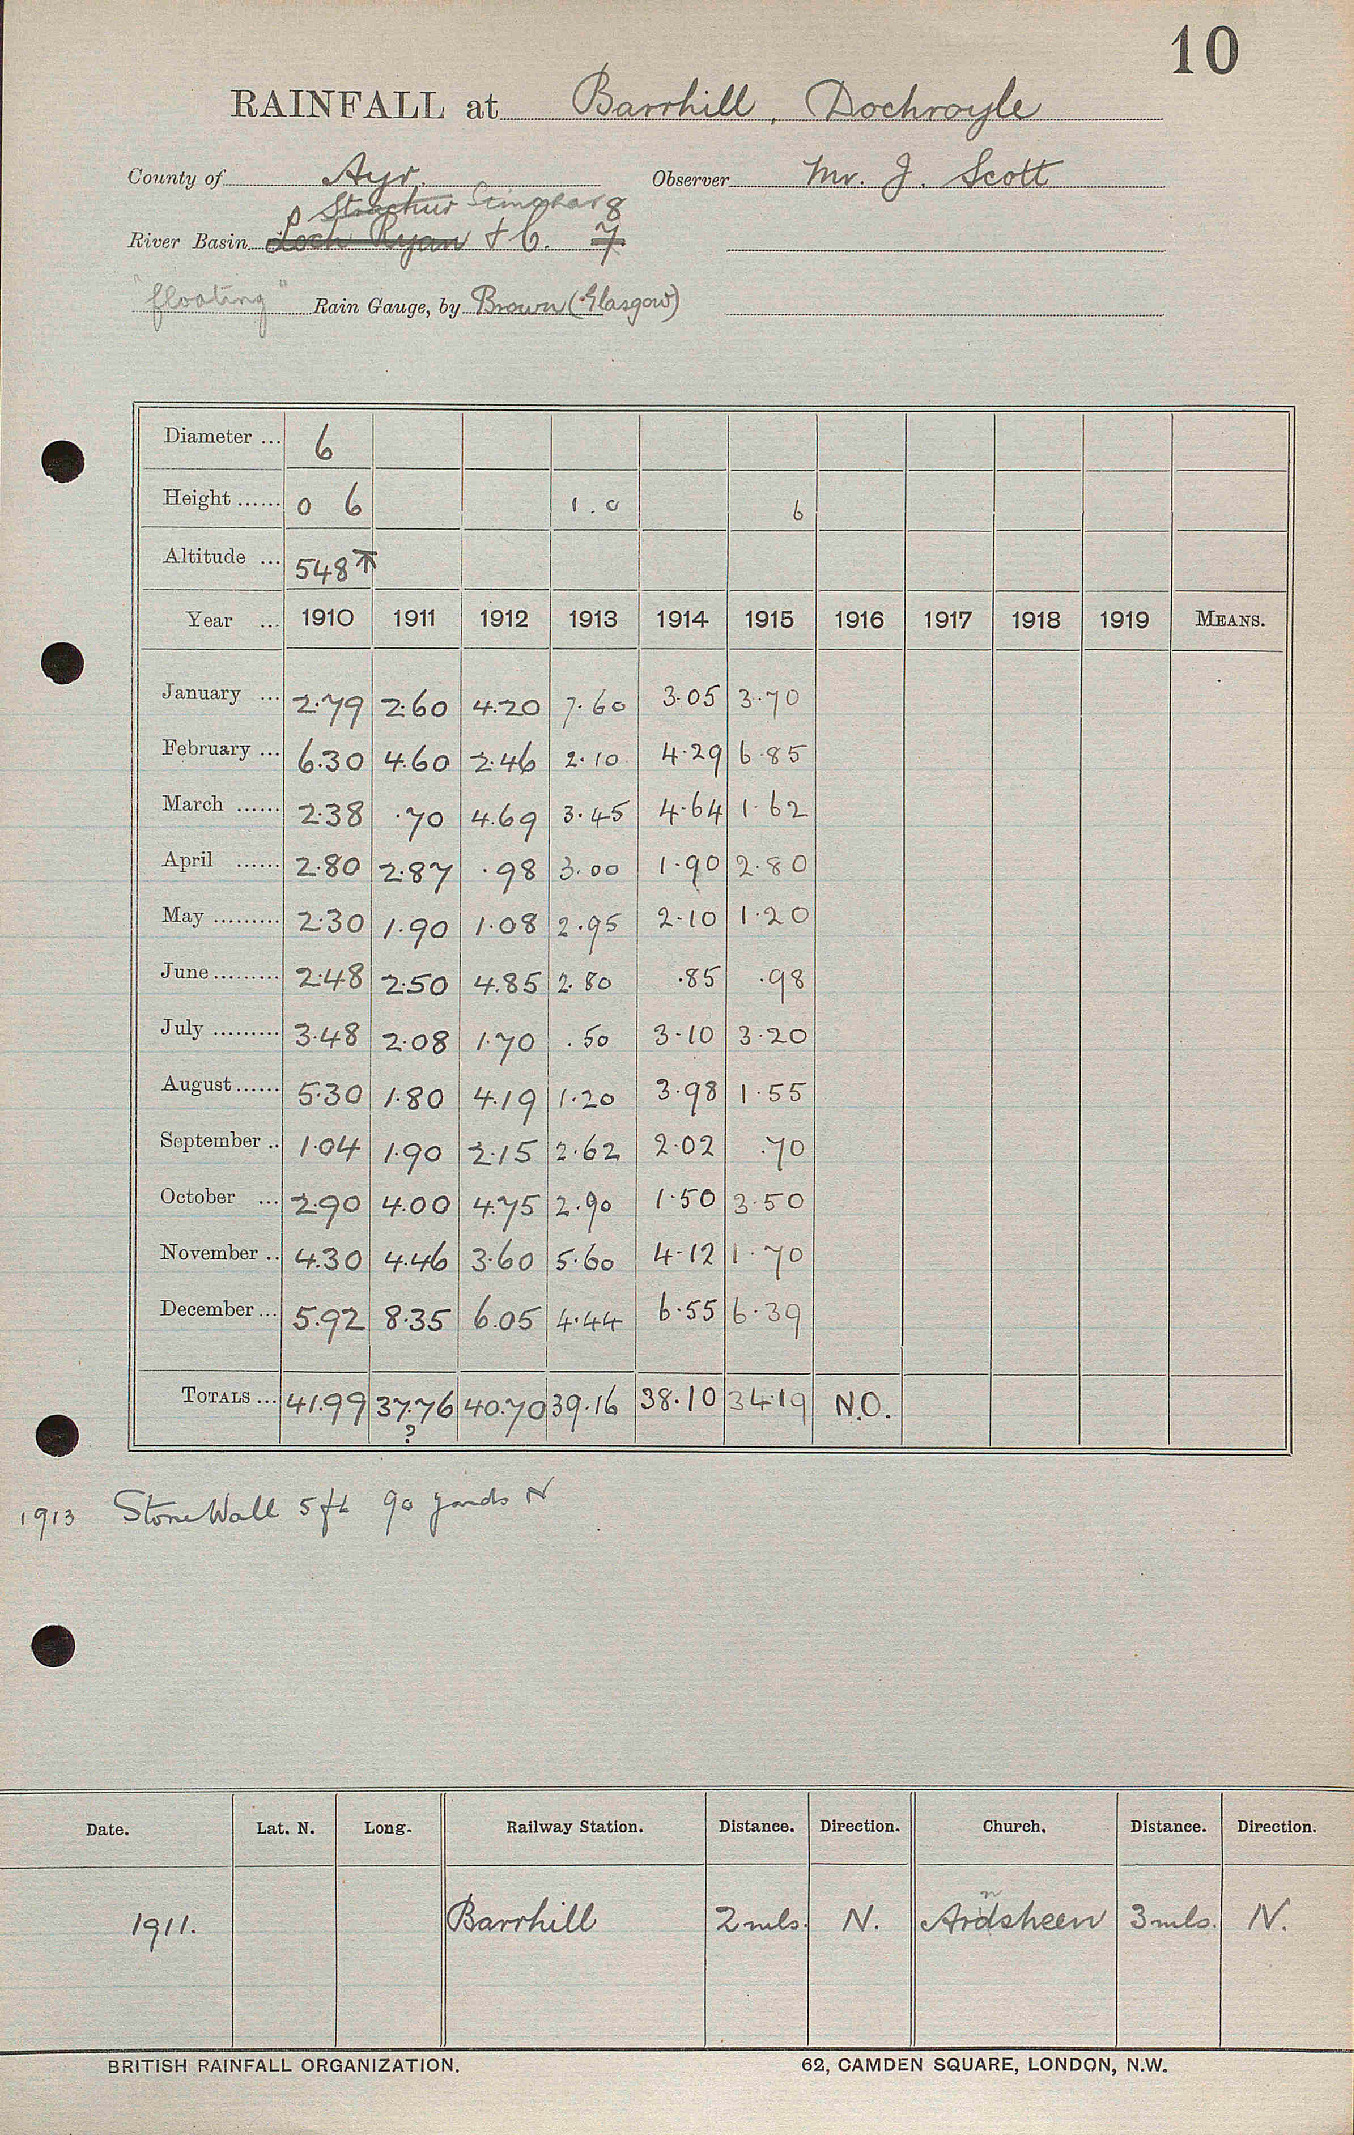 10
RAINFALL at Barrhill, Dochroyle
County of Ayr. Observer Mr. J. Scott
Stinchar 8
River Basin Loch Ryan + C. 7
"floating" Rain Gauge, by Brown (Glasgow)
Diameter ... 6
Height ...... 0 6 1.0 6
Altitude ... 548
Year ... 1910 1911 1912 1913 1914 1915 1916 1917 1918 1919 MEANS.
January ... 2.79 2.60 4.20 7.60 3.05 3.70
February ... 6.30 4.60 2.46 2.10 4.29 6.85
March ...... 2.38 .70 4.69 3.45 4.64 1.62
April ...... 2.80 2.87 .98 3.00 1.90 2.80
May ......... 2.30 1.90 1.08 2.95 2.10 1.20
June ......... 2.48 2.50 4.85 2.80 .85 .98
July ......... 3.48 2.08 1.70 .50 3.10 3.20
August ...... 5.30 1.80 4.19 1.20 3.98 1.55
September .. 1.04 1.90 2.15 2.62 2.02 .70
October ... 2.90 4.00 4.75 2.90 1.50 3.50
November .. 4.30 4.46 3.60 5.60 4.12 1.70
December ... 5.92 8.35 6.05 4.44 6.55 6.39
TOTALS ... 41.99 37.76 40.70 39.16 38.10 34.19 N.O.
?
1913 Stone Wall 5 ft 90 yards N
Date. Lat. N. Long. Railway Station. Distance. Direction. Church. Distance. Direction.
1911. Barrhill 2 mls. N. Ardsheen 3 mls. N.
BRITISH RAINFALL ORGANIZATION. 62, CAMDEN SQUARE, LONDON, N.W.